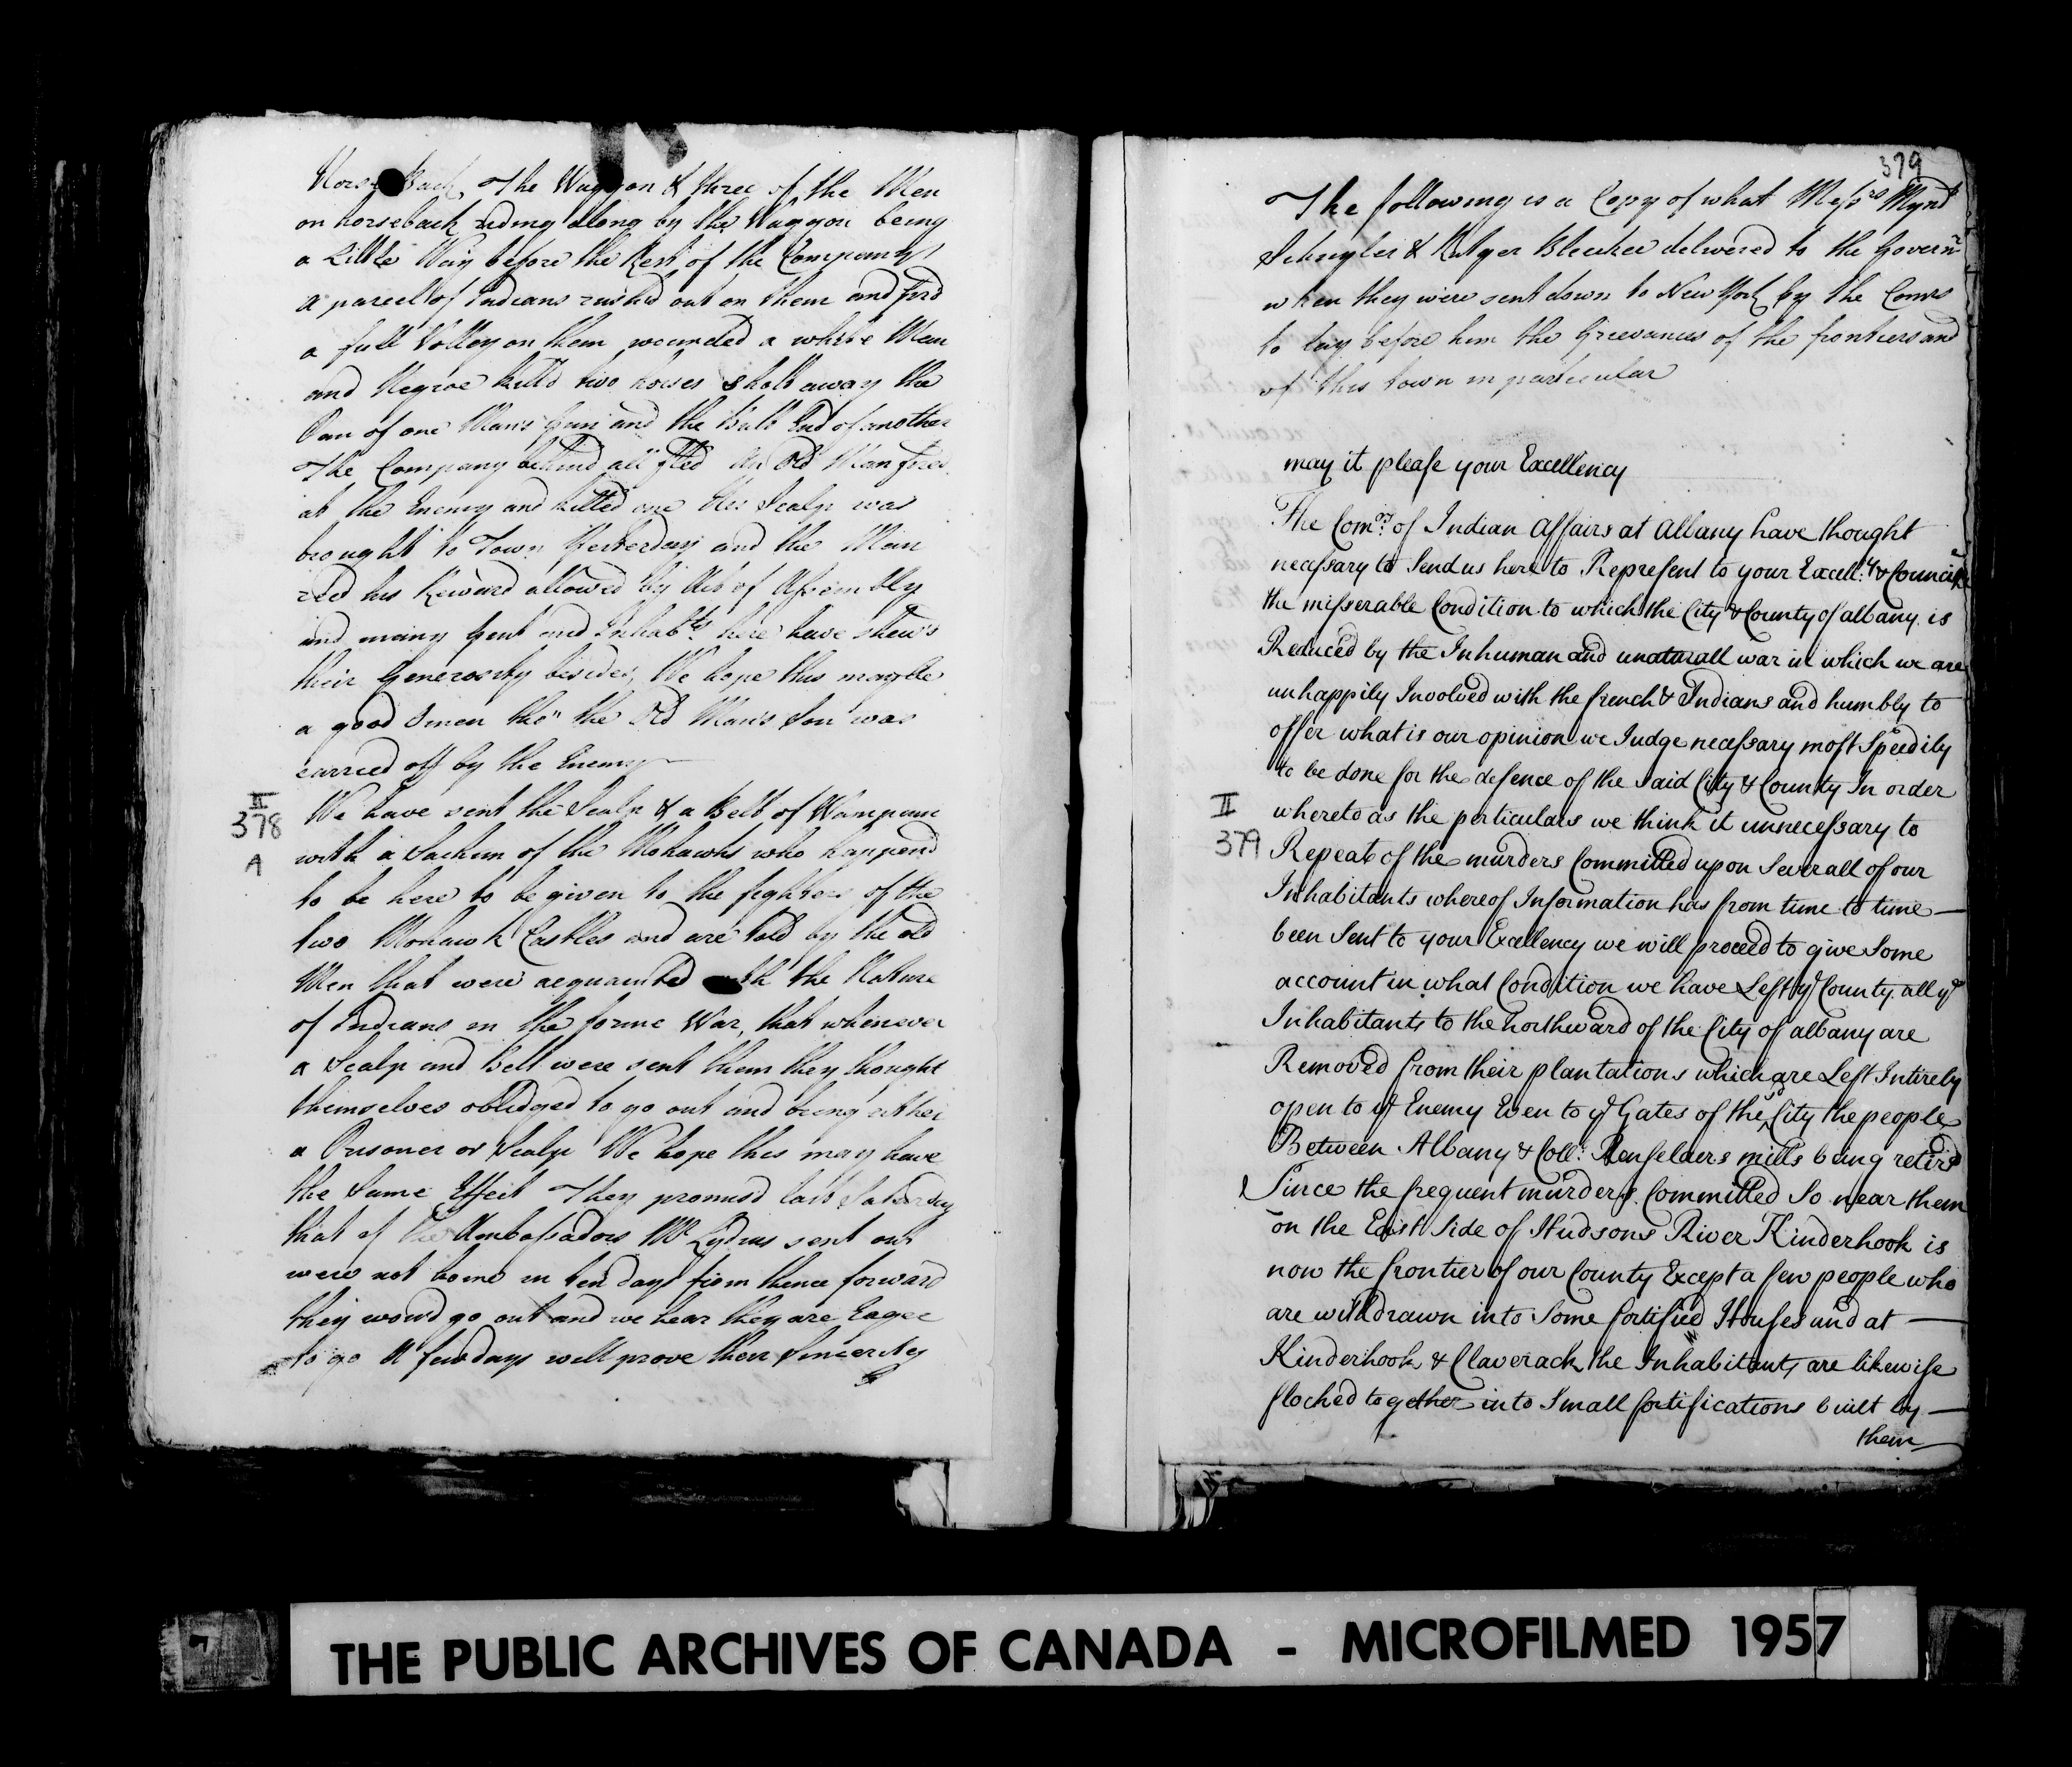 Horse Back, The Waggon & three of the Men
on horseback riding along by the Waggon being
a Little Way before the Rest of the Company
a parcel of Indians rushed out on them and fird
a full Volley on them wounded a white Man
and Negroe killd two horses Shott away the
Pan of one Mans Gun and the Butt End of another
The Company behind all fled An Old Man fired
at the Enemy and killed one his Scalp was
brought to Town Yesterday and the Man
recd his Reward allowed by Act of Assembly
and many Gent and Inhabts here have shew'd
their Generosity besides, We hope this may be
a good Omen tho" the Old Man's Son was
carried off by the Enemy
II
378
A
We have sent the Scalp & a Belt of Wampum
with a Sachim of the Mohawks who happend
to be here to be given to the fighters of the
two Mohawk Castles and are told by the old
Men that were acquainted with the Nature
of Indians in the forme War, that whenever
a Scalp and Belt were sent them they thought
themselves obledged to go out and bring either
a Prisoner or Scalp We hope this may have
the Same Effect They promisd last Saturday
that if the Ambassadors Mr Lydius sent out
were not home in ten days from thence forward
they would go out and we hear they are Eager
to go A few days will prove their Sincerity
379
The following is a Copy of what Messrs Mynd
Schuyler & Rutger Bleecker delivered to the Governr
when they were sent down to New York by the Comrs
to lay before him the Grievances of the frontiers and
of this town in particular
may it please your Excellency
The Comrs: of Indian Affairs at Albany have thought
necessary to Send us here to Represent to your Excell:cy & Councill
the misserable Condition to which the City & County of albany is
Reduced by the Inhuman and unaturall war in which we are
unhappily Involved with the french & Indians and humbly to
offer what is our opinion we Judge necessary most Speedily
to be done for the defence of the Said City & County In order
whereto as the perticulars we think it unnecessary to
II
379
Repeat of the murders Committed upon Severall of our
Inhabitants whereof Information has from time to time —
been Sent to your Excellency we will proceed to give Some
account in what Condition we have Left ye County all ye
Inhabitants to the northward of the City of albany are
Removed from their plantations which are Left Intirely
open to ye Enemy Even to ye Gates of the sd City the people
Between Albany & Coll: Renselaers mills being retird
Since the frequent murders Committed So near them
on the East Side of Hudsons River Kinderhook is
now the frontier of our County Except a few people who
are withdrawn into Some fortified Houses and at —
Kinderhook & Claverack the Inhabitants are likewise
flocked together into Small fortifications built by —
them
THE PUBLIC ARCHIVES OF CANADA - MICROFILMED 1957